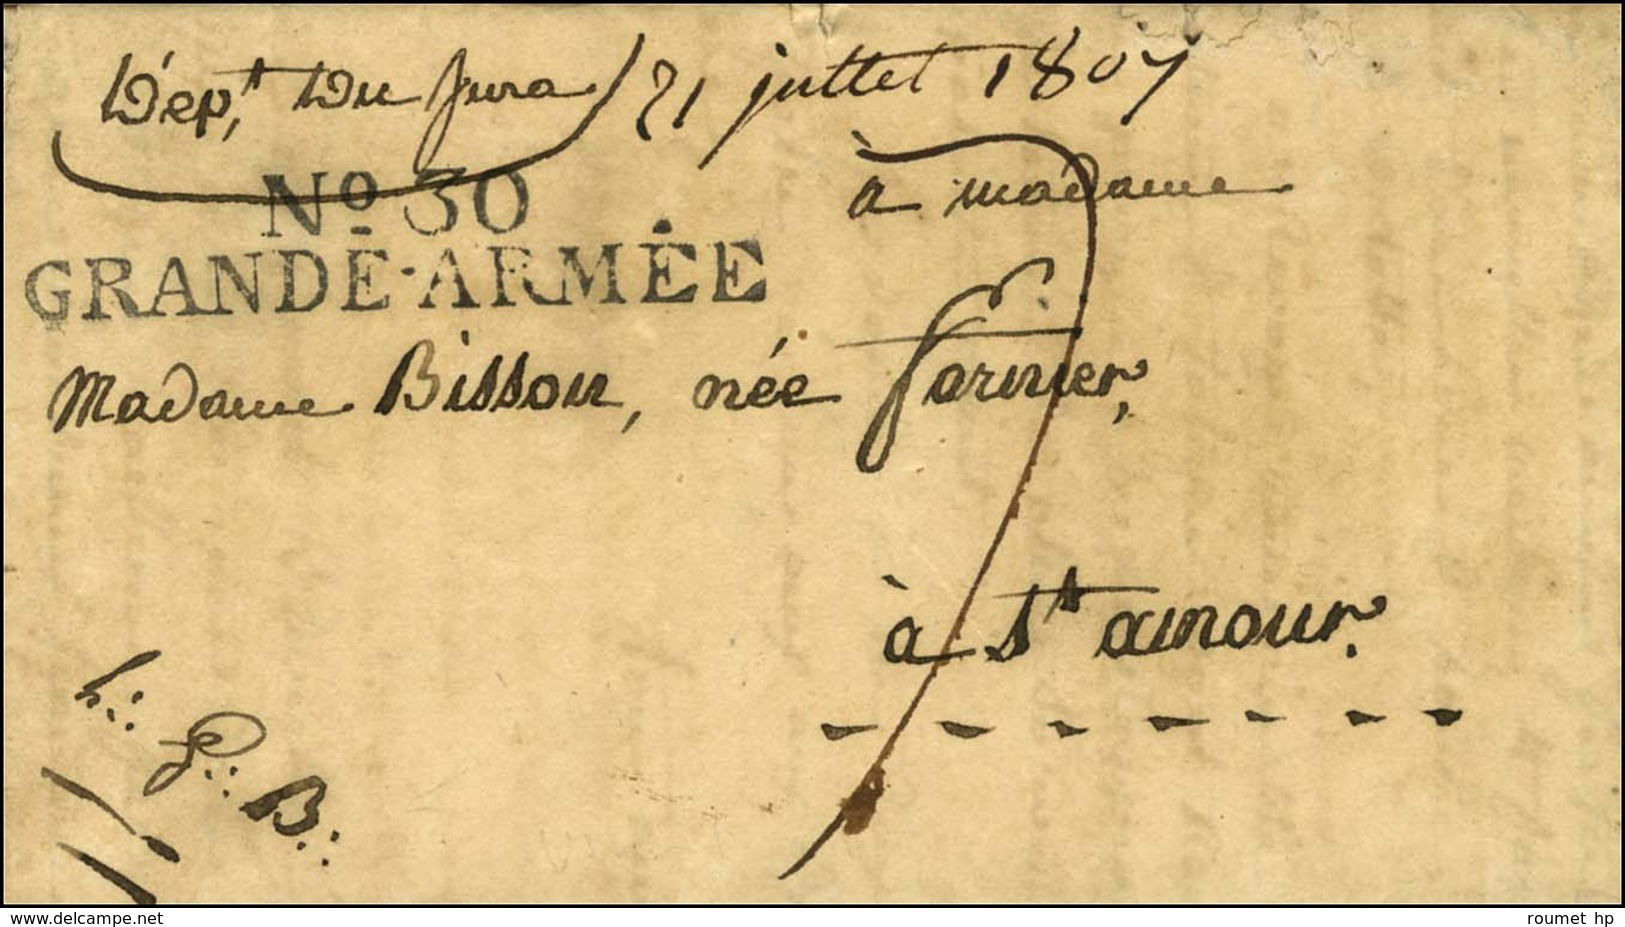 Dép.t Du Jura / 21 juttet 1807
à madame
No 30
GRANDE-ARMÉE
Madame Bisson, née fornier,
à St amour.
h.: G.: B.:
www.delcampe.net
roumet hp